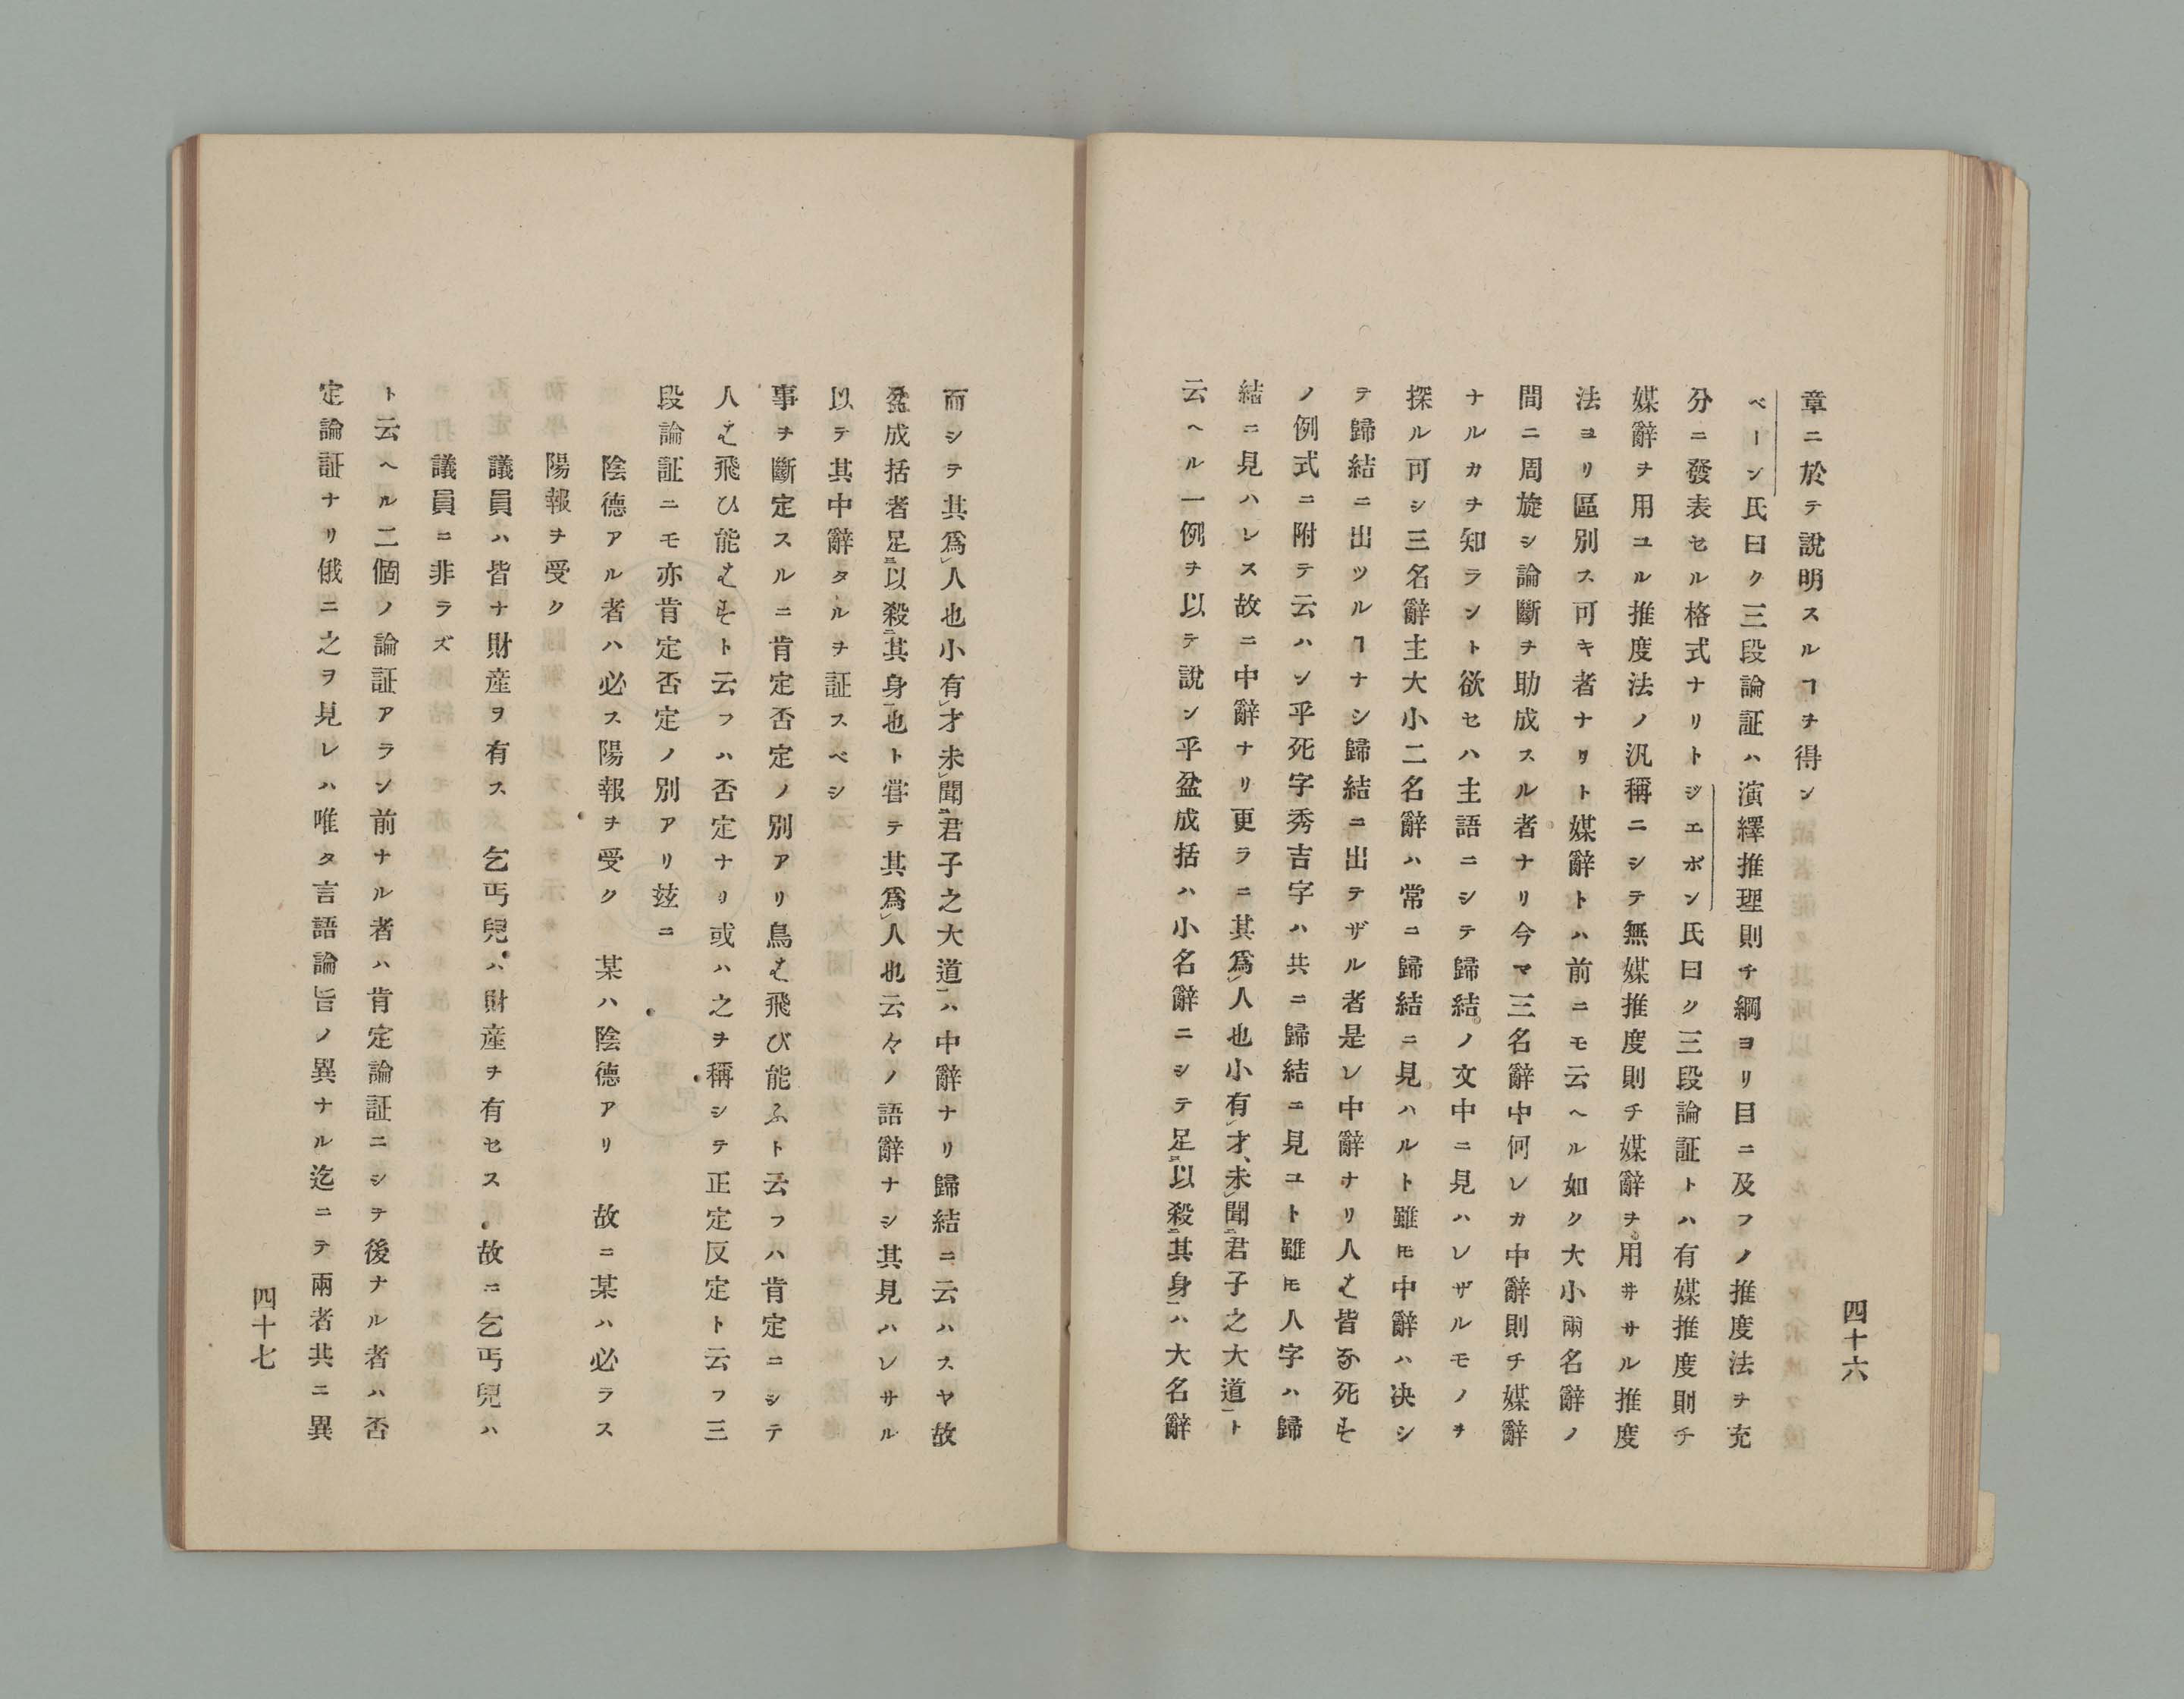 四十六
章ニ於テ說明スルヿヲ得ン
ベーン氏曰ク三段論証ハ演繹推理則チ綱ヨリ目ニ及フノ推度法ヲ充
分ニ發表セル格式ナリトジエボン氏曰ク三段論証トハ有媒推度則チ
媒辭ヲ用ユル推度法ノ汎稱ニシテ無媒推度則チ媒辭ヲ用井サル推度
法ヨリ區別ス可キ者ナリト媒辭トハ前ニモ云ヘル如ク大小兩名辭ノ
間ニ周旋シ論斷ヲ助成スル者ナリ今マ三名辭中何レカ中辭則チ媒辭
ナルカヲ知ラント欲セハ主語ニシテ歸結ノ文中ニ見ハレザルモノヲ
探ル可シ三名辭主大小二名辭ハ常ニ歸結ニ見ハルト雖𪜈中辭ハ决シ
テ歸結ニ出ツルヿナシ歸結ニ出テザル者是レ中辭ナリ人は皆な死す
ノ例式ニ附テ云ハン乎死字秀吉字ハ共ニ歸結ニ見ユト雖𪜈人字ハ歸
結ニ見ハレス故ニ中辭ナリ更ラニ其爲レ人也小有レ才、未レ聞二君子之大道一ト
云ヘル一例ヲ以テ說ン乎盆成括ハ小名辭ニシテ足三以殺二其身一ハ大名辭
而シテ其爲レ人也小有レ才未レ聞二君子之大道一ハ中辭ナリ歸結ニ云ハスヤ故
盆成括者足三以殺二其身一也ト嘗テ其爲レ人也云々ノ語辭ナシ其見ハレサル
以テ其中辭タルヲ証スベシ
事ヲ斷定スルニ肯定否定ノ別アリ鳥は飛び能ふト云フハ肯定ニシテ
人は飛ひ能はずト云フハ否定ナリ或ハ之ヲ稱シテ正定反定ト云フ三
段論証ニモ亦肯定否定ノ別アリ玆ニ
陰德アル者ハ必ス陽報ヲ受ク 某ハ陰德アリ 故ニ某ハ必ラス
陽報ヲ受ク
議員ハ皆ナ財産ヲ有ス 乞丐兒ハ財産ヲ有セス 故ニ乞丐兒ハ
議員ニ非ラズ
ト云ヘル二個ノ論証アラン前ナル者ハ肯定論証ニシテ後ナル者ハ否
定論証ナリ俄ニ之ヲ見レハ唯タ言語論旨ノ異ナル迄ニテ兩者共ニ異
四十七